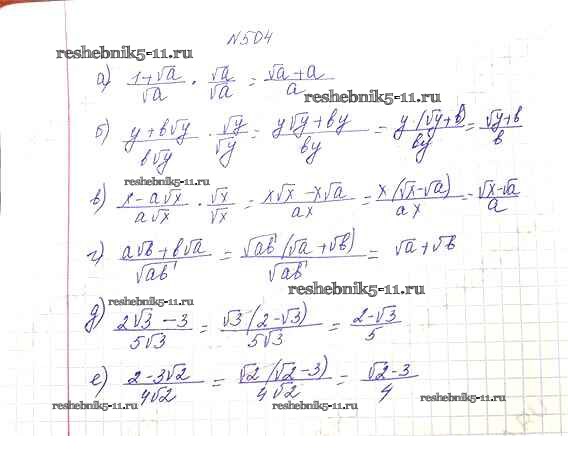 №504
reshebnik5-11.ru
а) (1+√a)/√a · √a/√a = (√a+a)/a
reshebnik5-11.ru
б) (y+b√y)/(b√y) · √y/√y = (y√y+by)/(by) = (y·(√y+b))/(by) = (√y+b)/b
в) (x-a√x)/(a√x) · √x/√x = (x√x-x√a)/(ax) = (x(√x-√a))/(ax) = (√x-√a)/a
г) (a√b+b√a)/√ab = (√ab(√a+√b))/√ab = √a+√b
reshebnik5-11.ru
reshebnik5-11.ru
д) (2√3-3)/(5√3) = (√3(2-√3))/(5√3) = (2-√3)/5
е) (2-3√2)/(4√2) = (√2(√2-3))/(4√2) = (√2-3)/4
reshebnik5-11.ru reshebnik5-11.ru reshebnik5-11.ru